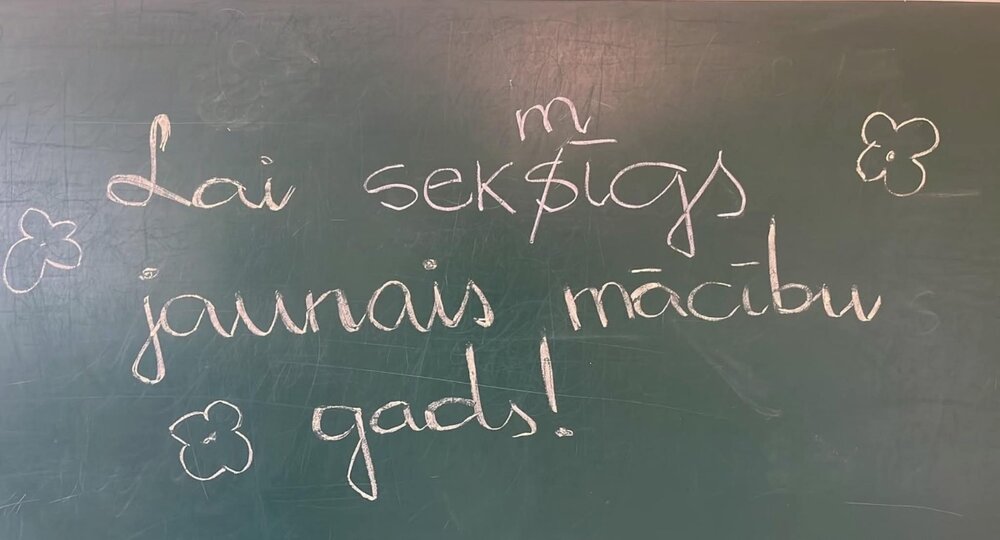 m
Lai seksīgs
jaunais mācību
gads!